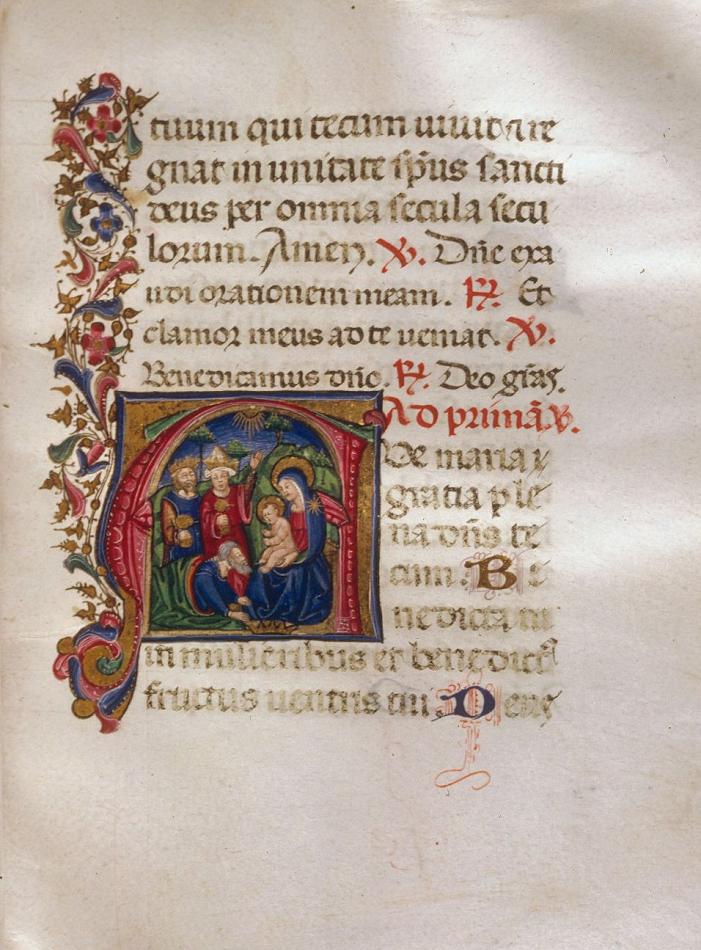 tuum qui tecum uiuit et re
gnat in unitate sp̄us sancti
deus per omnia secula secu
lorum. Amen. V̷. Dn̄e exa
udi orationem meam. R̷. Et
clamor meus ad te ueniat. V̷.
Benedicamus dn̄o. R̷. Deo gr̄as.
Ad primā. V̷.
Aue maria
gratia ple
na dn̄s te
cum. B e
nedicta tu
in mulieribus et benedict᷒
fructus uentris tui. Deus